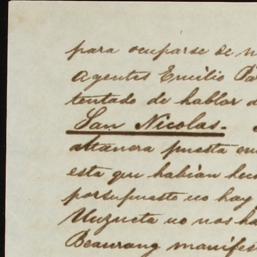 para ocuparse de
Agentes Emilio
tentado de hablar
San Nicolas.-
altanera puesta en
esta que habian
porsupuesto no hay
Unzueta no nos
Beaurang